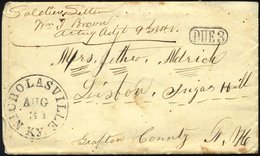 Soldiers Letter
Wm. J. Brown
Acting Adjt 9
DUE 3
Mrs. Aldrich
Lisbon Sugar Hill
Grafton County N. H
NICHOLASVILLE KY.
AUG
31